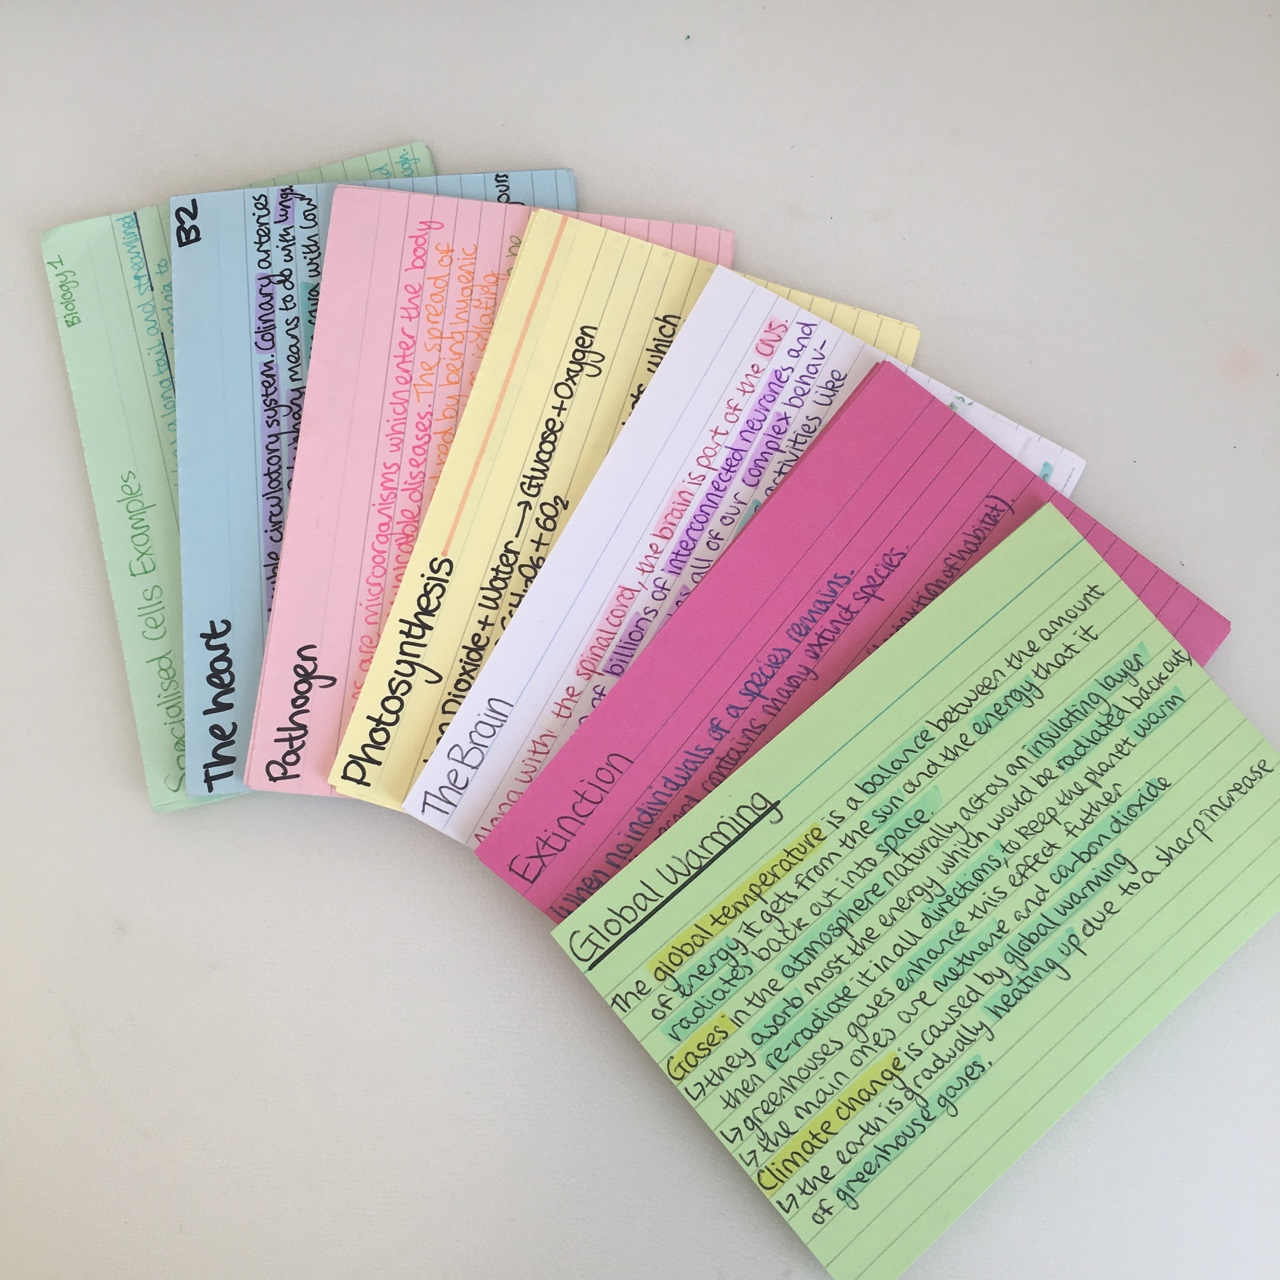 Biology 1
Specialised Cells Examples
long tail and streamlined
to
B2
The heart
circulatory system. Colinary arteries
means to do with lungs
with low
Pathogen
are microorganisms which enter the body
diseases. The spread of
by being hygenic
Photosynthesis
Dioxide + Water → Glucose + Oxygen
+ 6O2
which
The Brain
Along with the spinal cord, the brain is part of the CNS.
of billions of interconnected neurones and
all of our complex behav-
activities like
Extinction
When no individuals of a species remains.
contains many extinct species.
of habitat).
Global Warming
The global temperature is a balance between the amount
of energy it gets from the sun and the energy that it
radiates back out into space.
Gases in the atmosphere naturally act as an insulating layer
↳ they asorb most the energy which would be radiated back out
then re-radiate it in all directions, to keep the planet warm
↳ greenhouses gases enhance this effect futher
↳ the main ones are methane and carbon dioxide
Climate change is caused by global warming
↳ the earth is gradually heating up due to a sharp increase
of greenhouse gases.